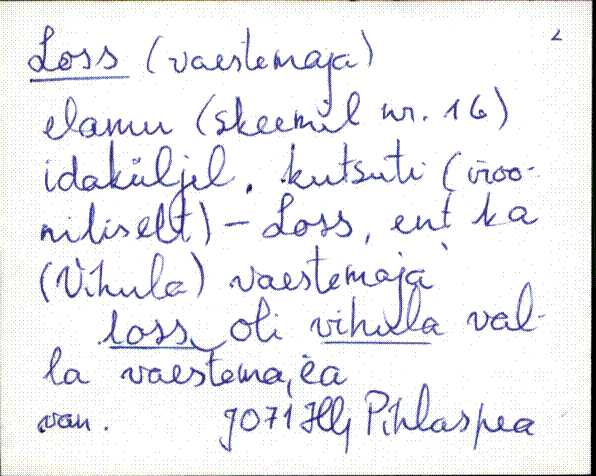 2
Loss (vaestemaja)
elamu (skeemil nr. 16)
idaküljel. kutsuti (iroo-
niliselt) – Loss, ent ka
(Vihula) vaestemaja
loss oli vihula val-
la vaestema,
van. Pihlaspea